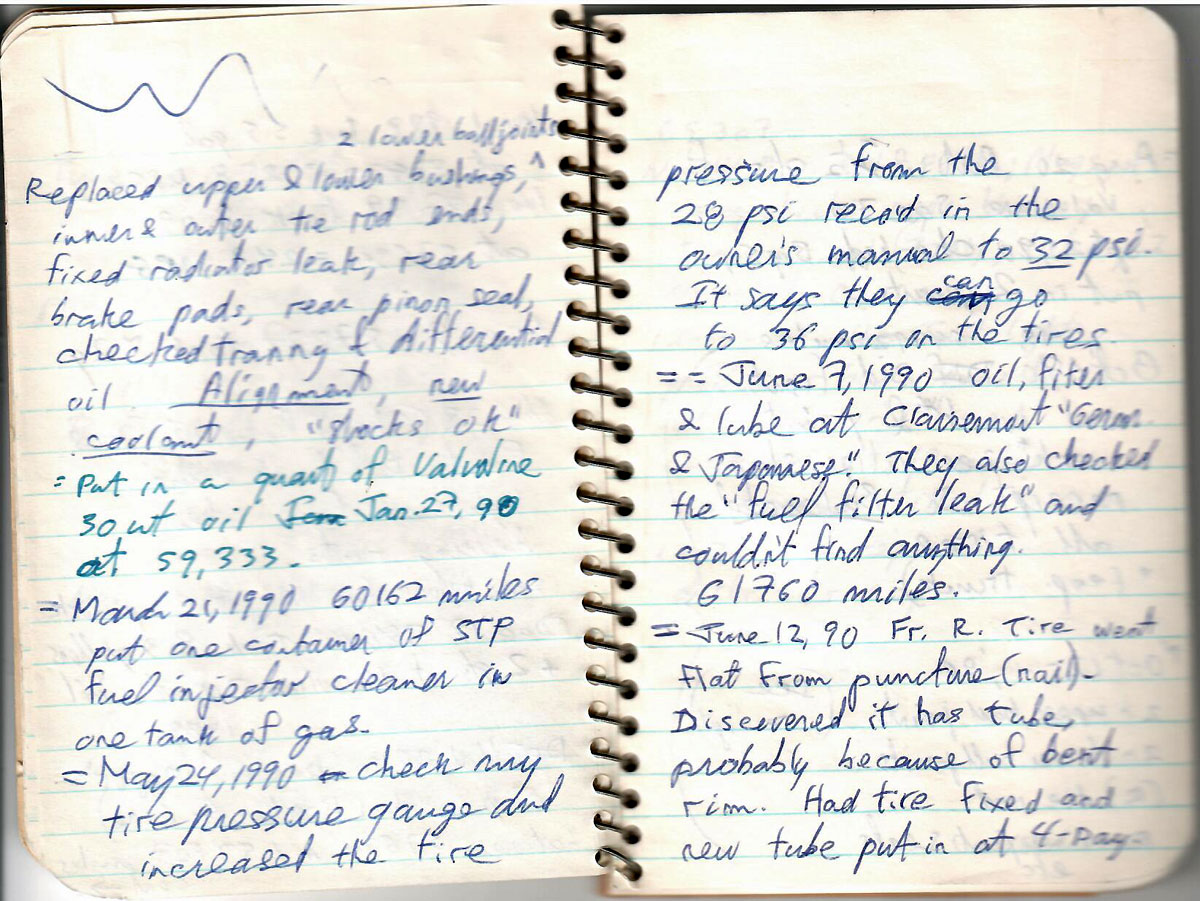 2 lower ball joints
Replaced upper & lower bushings, ^
inner & outer tie rod ends,
fixed radiator leak, rear
brake pads, rear pinon seal,
checked tranny & differential
oil Alignment, new
coolant, "shocks ok"
= Put in a quart of Valvoline
30 wt oil Jan. 27, 90
at 59,333.
= March 21, 1990 60162 miles
put one container of STP
fuel injector cleaner in
one tank of gas.
= May 24, 1990 check my
tire pressure gauge and
increased the tire
pressure from the
28 psi recc'd in the
owner's manual to 32 psi.
It says they can go
to 36 psi on the tires.
= = June 7, 1990 oil, fiter
& lube at Clairemont "German
& Japanese". They also checked
the "fuel filter leak" and
couldn't find anything.
61760 miles.
= June 12, 90 Fr. R. Tire went
Flat From puncture (nail).
Discovered it has tube,
probably because of bent
rim. Had tire fixed and
new tube put in at 4-Day.